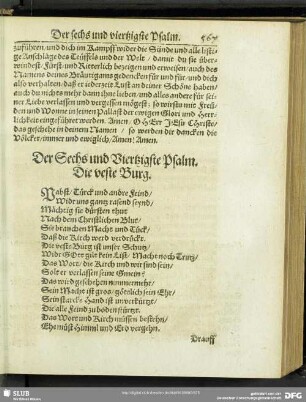 Der sechs und viertzigste Psalm. 567
zuführen, und dich im Kampff wider die Sünde und alle listi-
ge Anschläge des Teuffels und der Welt / damit du sie über-
windest / Fürst- und Ritterlich bezeigen und erweisen / auch des
Namens deines Bräutigams gedencken für und für / und dich
also verhalten / daß er iederzeit Lust an deiner Schöne haben /
auch du nichts mehr dann ihn lieben / und alles andere für sei-
ner Liebe verlassen und vergessen mögest; so wirstu mit Freu-
den und Wonne in seinen Pallast der ewigen Glori und Herr-
lichkeit eingeführet werden. Amen. O HErr JEsu CHriste /
das geschehe in deinem Namen / so werden dir dancken die
Völcker / immer und ewiglich / Amen; Amen.
Der Sechs und Viertzigste Psalm.
Die veste Burg.
Pabst / Türck und andre Feind /
Wider uns gantz rasend seynd /
Mächtig sie dürsten thut
Nach dem Christlichen Blut /
Sie brauchen Macht und Tück /
Daß die Kirch werd verdrückt.
Die veste Burg ist unser Schutz /
Wider GOtt gilt kein List / Macht noch Trutz /
Das Wort / die Kirch und wir sind sein /
Solt er verlassen seine Gmein?
Das wird geschehen nimmermehr /
Sein Macht ist gros / göttlich sein Ehr /
Sein starcke Hand ist unverkürtzt /
Die alle Feind zu boden stürtzt.
Das Wort und Kirch müssen bestehn /
Eh müst Himml und Erd vergehn.
Drauff